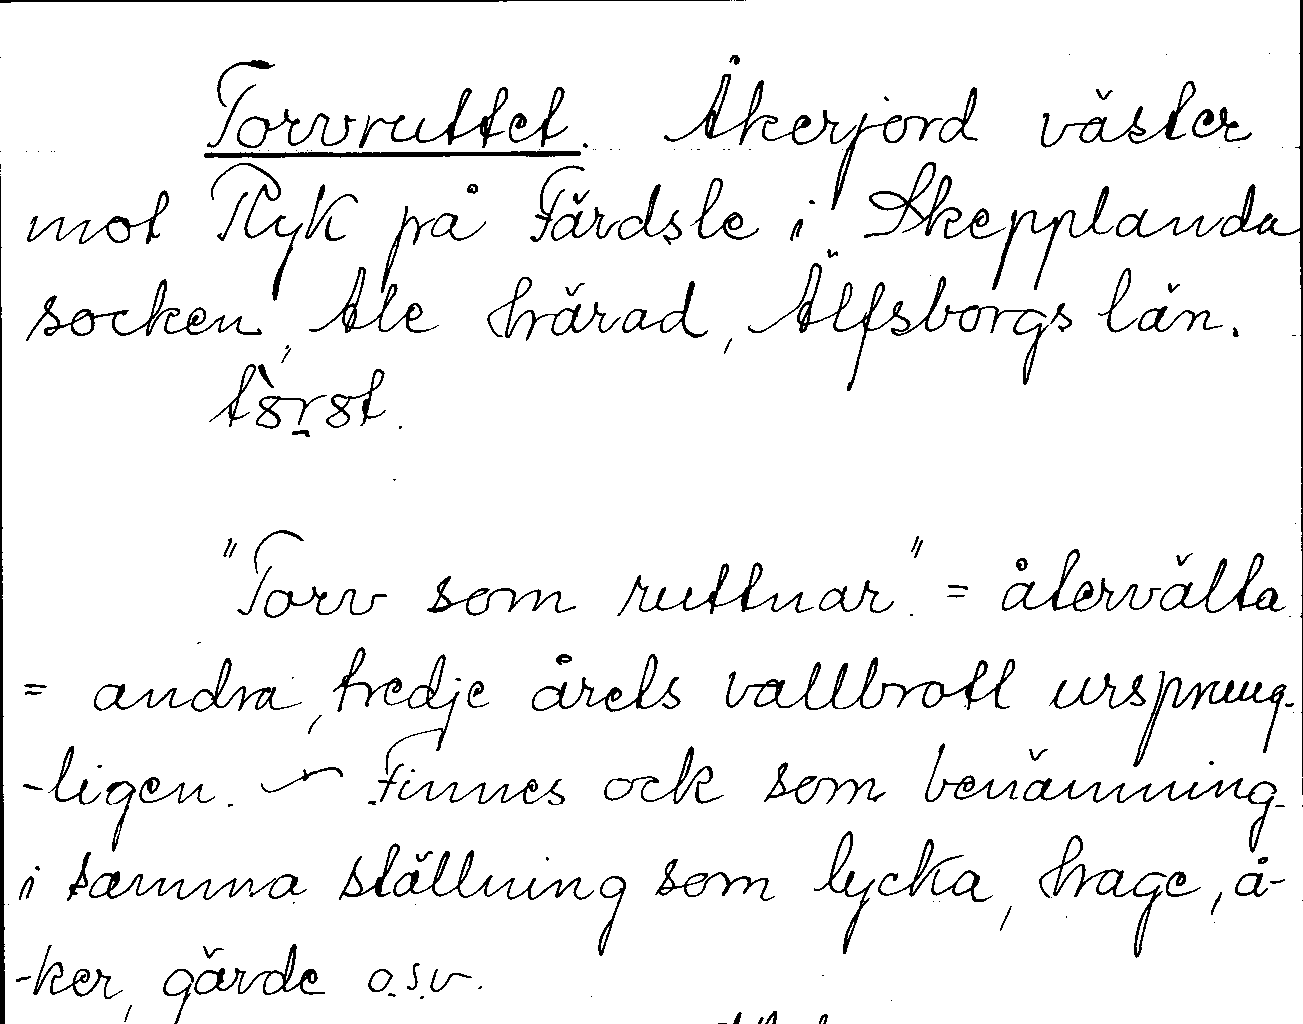 Torvruttet. Åkerjord väster
mot Ryk på Färdsle i Skepplanda
socken, Ale härad, Älfsborgs län.
"Torv som ruttnar". = återvälta
= andra, tredje årets vallbrott ursprung-
-ligen. — Finnes ock som benämning
i samma ställning som lycka, hage, å-
-ker, gärde o.s.v.